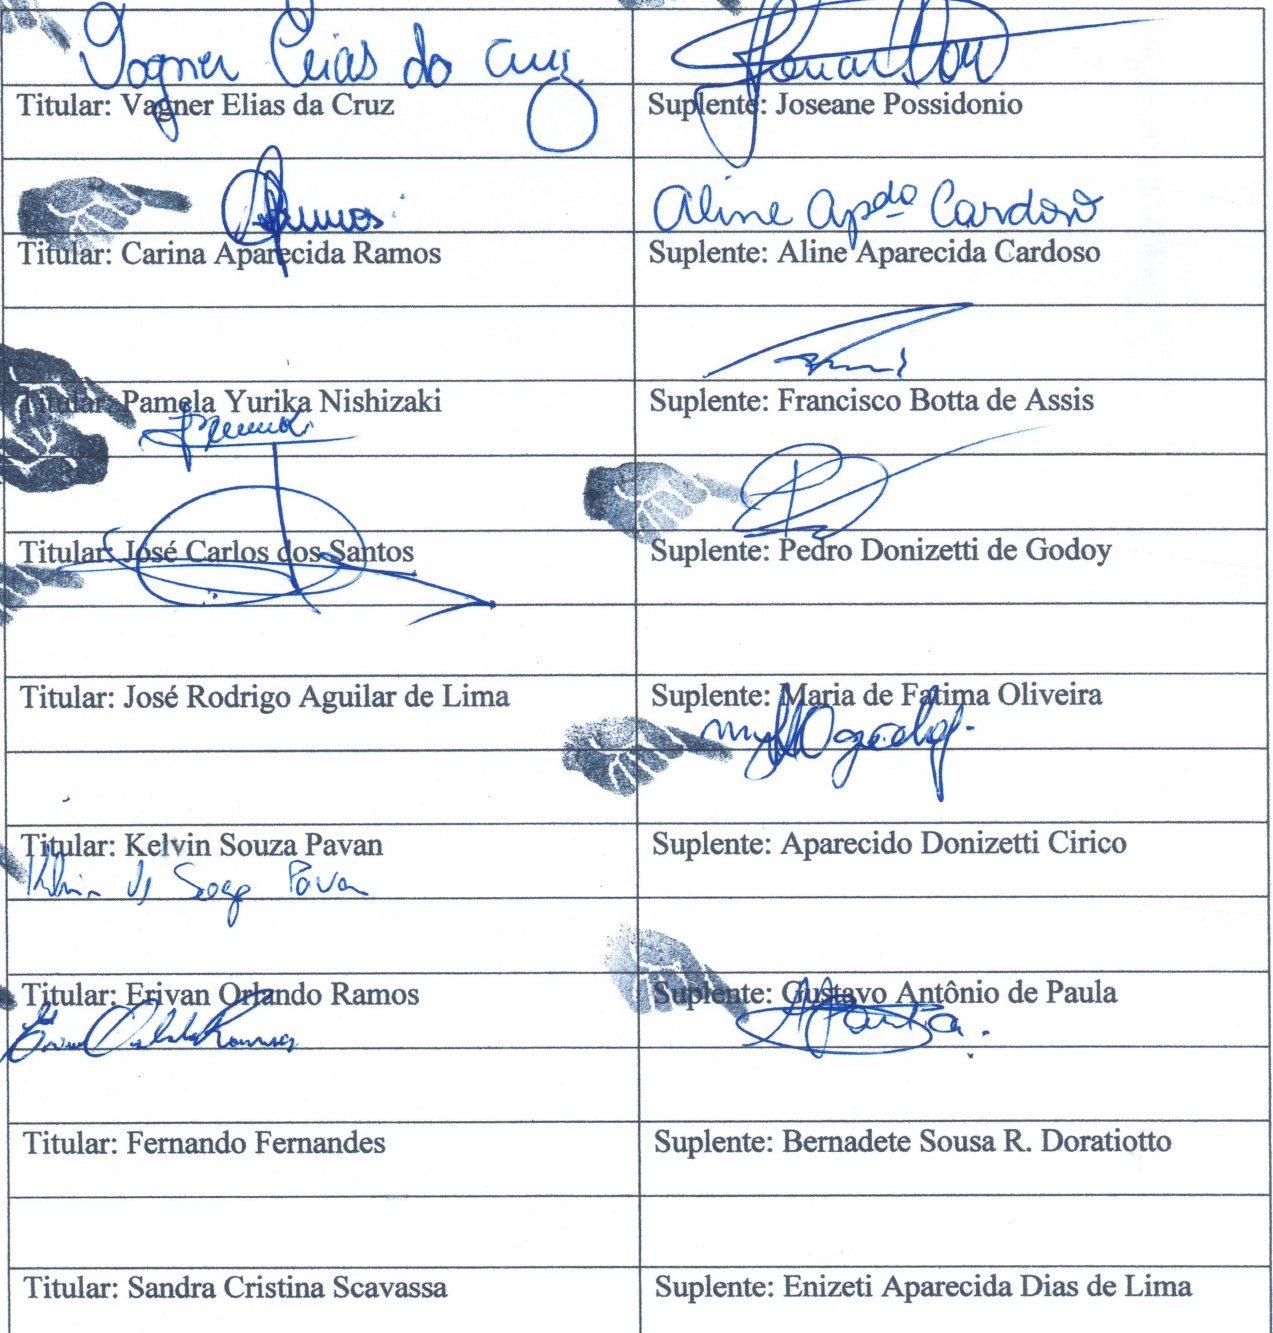 Vagner Elias da Cruz
Titular: Vagner Elias da Cruz
Suplente: Joseane Possidonio
Ramos
Aline Apdª Cardoso
Titular: Carina Aparecida Ramos
Suplente: Aline Aparecida Cardoso
Titular: Pamela Yurika Nishizaki
Suplente: Francisco Botta de Assis
Titular: José Carlos dos Santos
Suplente: Pedro Donizetti de Godoy
Titular: José Rodrigo Aguilar de Lima
Suplente: Maria de Fatima Oliveira
Titular: Kelvin Souza Pavan
Suplente: Aparecido Donizetti Cirico
Pavan
Titular: Erivan Orlando Ramos
Suplente: Gustavo Antônio de Paula
Titular: Fernando Fernandes
Suplente: Bernadete Sousa R. Doratiotto
Titular: Sandra Cristina Scavassa
Suplente: Enizeti Aparecida Dias de Lima